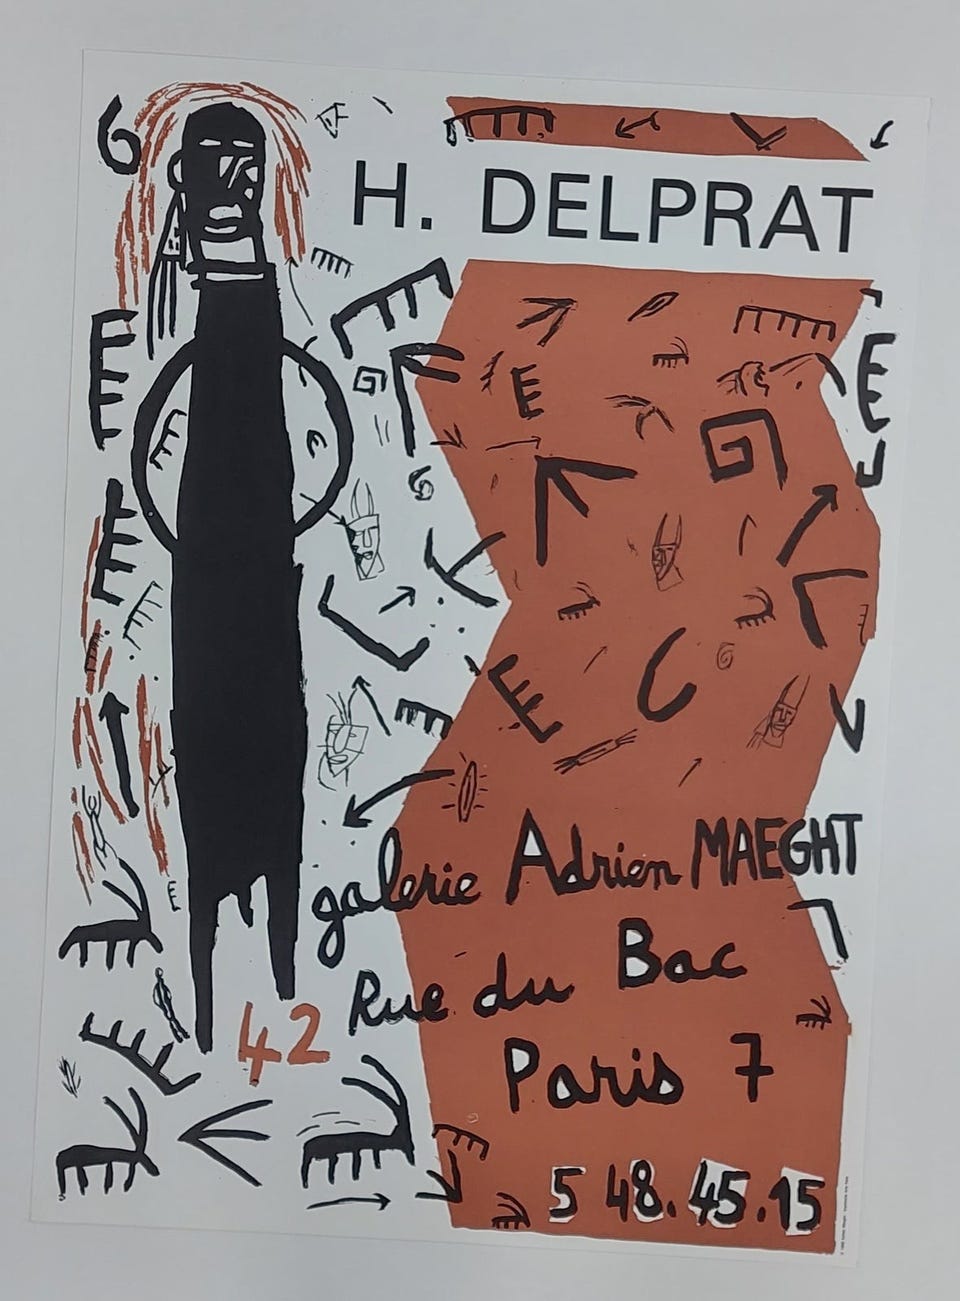 H. DELPRAT
galerie Adrien MAEGHT
42 Rue du Bac
Paris 7
5 48.45.15